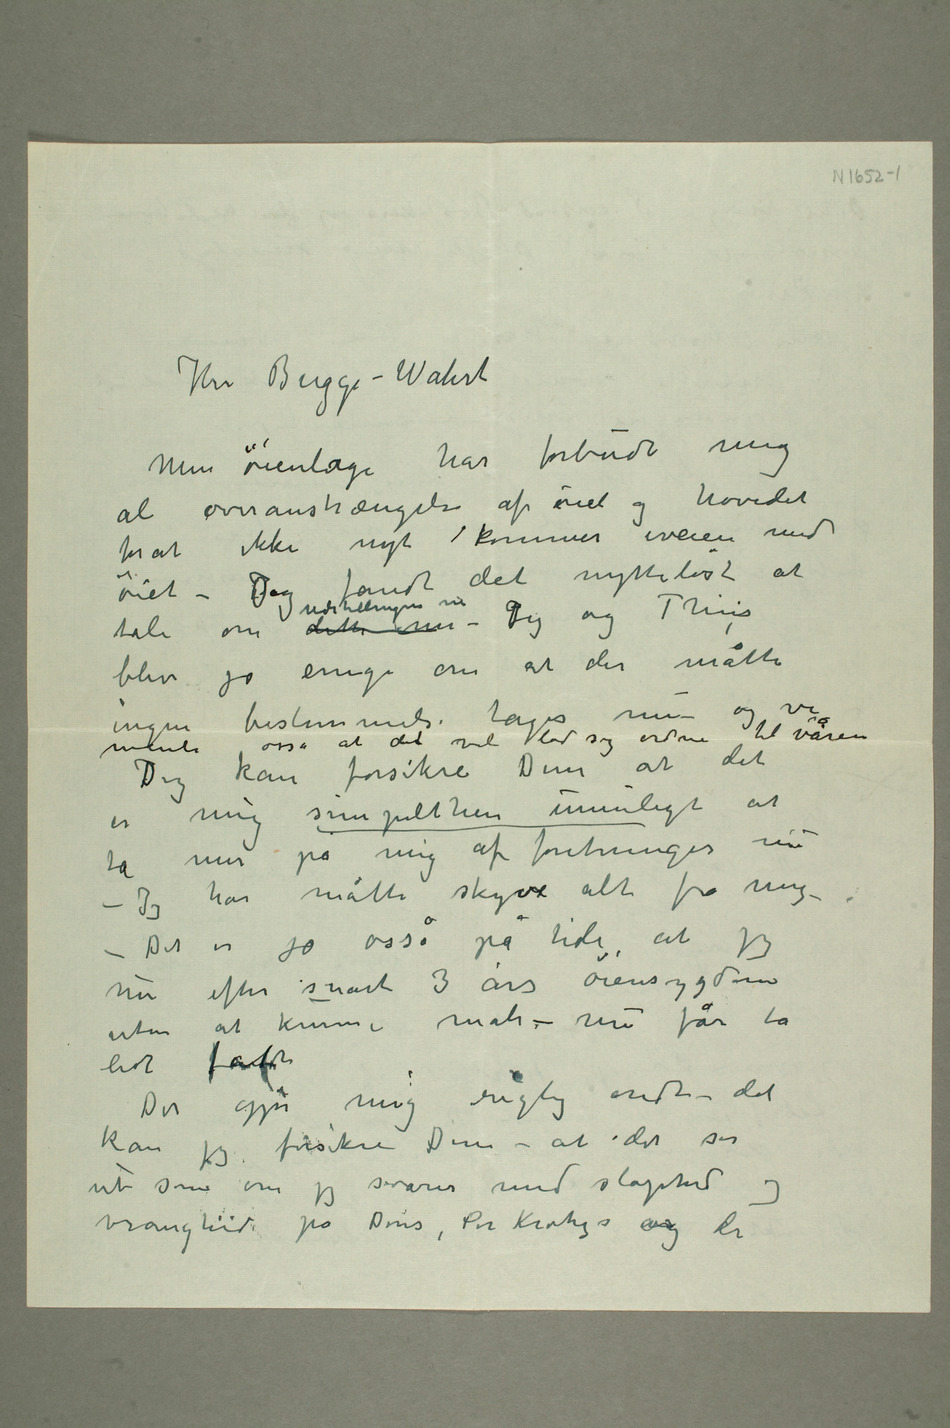 N 1652-1
Hr Bugge-Wahrt
Min øienlæge har forbudt mig
al overanstrængelse af øiet og hovedet
forat ikke nyt kommer iveien med
øiet – Jeg fandt det nytteløst at
tale om dette nu udstillingen nu – Jeg og Thiis
blev jo enige om at der måtte
ingen bestemmelse tages nu – og vi
mente osså at det vel lod sig ordne til våren
Jeg kan forsikre Dem at det
er mig simpelthen umuligt at
ta mer på mig af foretninger nu
– Jeg har måtte skyve alt fra mig –
– Det er jo osså på tide, at jeg
nu efter snart 3 års øiensygdom
uten at kunne male – nu får ta
lidt fat
Det gjør mig rigtig ondt – det
kan jeg forsikre Dem – at det ser
ut som om jeg svarer med slaphed og
vranghed på Deres, Per Kroghs og de